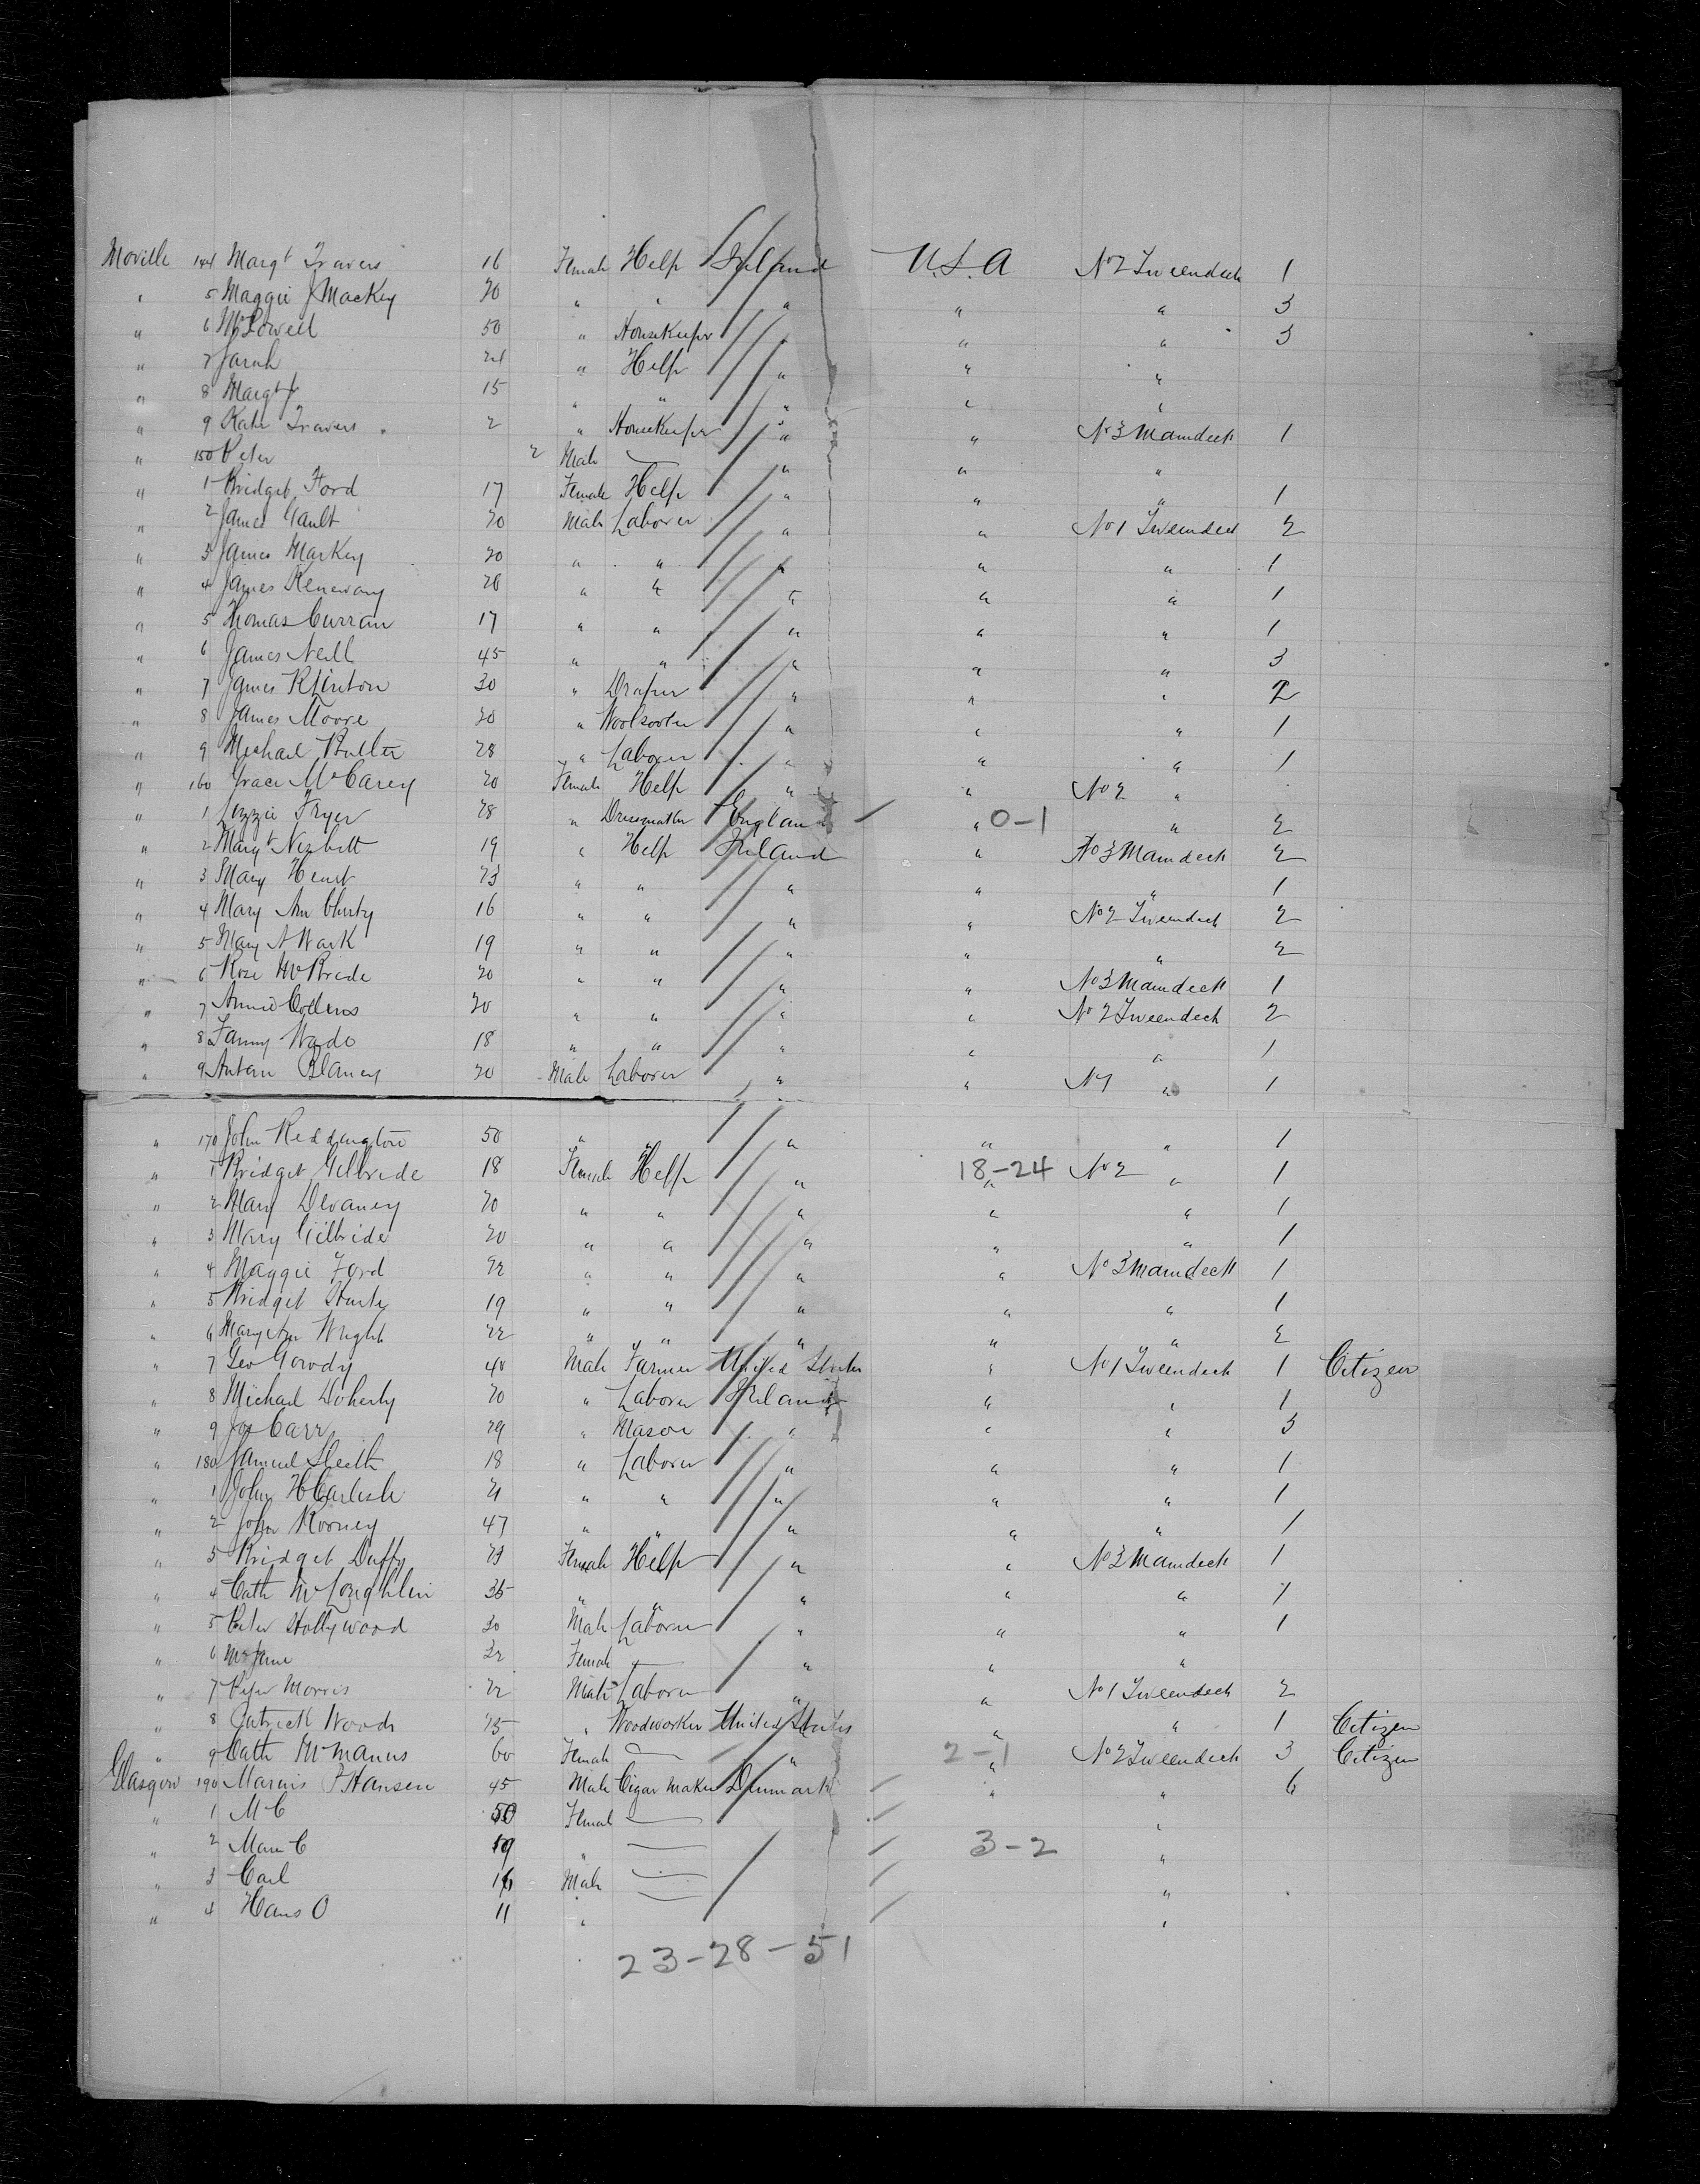 Moville 144 Margt Travers 16 Female Help Ireland U.S.A No 2 Tweendeck 1
" 5 Maggie J Mackey 20 " " " " " 3
" 6 50 " Housekeeper " " " 3
" 7 Sarah 21 " Help " " "
" 8 Margt J 15 " " " " "
" 9 Kate Travers 2 " Housekeeper " " No 3 Maindeck 1
" 150 Peter 2 Male — " " "
" 1 Bridget Ford 17 Female Help " " " 1
" 2 James Gault 20 Male Laborer " " No 1 Tweendeck 2
" 3 James Markey 20 " " " " " 1
" 4 James 20 " " " " " 1
" 5 Thomas Curran 17 " " " " " 1
" 6 James Neill 45 " " " " " 3
" 7 James Klinton 30 " Draper " " " 2
" 8 James Moore 20 " Woolsorter " " " 1
" 9 Michael Butler 28 " Laborer " " " 1
" 160 Grace McCarey 20 Female Help " " No 2 "
" 1 Lizzie Fryer 28 " Dressmaker England " 0-1 " 2
" 2 Margt Nesbitt 19 " Help Ireland " No 3 Maindeck 2
" 3 Mary 23 " " " " " 1
" 4 Mary Ann 16 " " " " No 2 Tweendeck 2
" 5 Mary A Wark 19 " " " " " 2
" 6 Rose McBride 20 " " " " No 3 Maindeck 1
" 7 Annie Collins 20 " " " " No 2 Tweendeck 2
" 8 Fanny Wade 18 " " " " " 1
" 9 Blaney 20 Male Laborer " " No 1 " 1
" 170 John Reddington 50 " " " " " 1
" 1 Bridget Gilbride 18 Female Help " 18-24 " No 2 " 1
" 2 Mary Devaney 20 " " " " " 1
" 3 Mary Gilbride 20 " " " " " 1
" 4 Maggie Ford 22 " " " " No 3 Maindeck 1
" 5 Bridget 19 " " " " " 1
" 6 Mary Ann Wright 22 " " " " " 2
" 7 Geo Gowdy 40 Male Farmer United States " No 1 Tweendeck 1 Citizen
" 8 Michael Doherty 20 " Laborer Ireland " " 1
" 9 Jas Carr 29 " Mason " " " 3
" 180 Samuel Sleith 18 " Laborer " " " 1
" 1 John H Carlisle 21 " " " " " 1
" 2 John Rooney 47 " " " " " 1
" 3 Bridget Duffy 23 Female Help " " No 3 Maindeck 1
" 4 Cath McLoughlin 35 " " " " " 1
" 5 Peter Hollywood 30 Male Laborer " " " 1
" 6 Mrs Jane 32 Female — " " "
" 7 Peter Morris 22 Male Laborer " " No 1 Tweendeck 2
" 8 Patrick Woods 75 " Woodworker United States " " 1 Citizen
" 9 Cath McManus 60 Female — " 2-1 " No 2 Tweendeck 3 Citizen
Glasgow 190 Marius F Hansen 45 Male Cigar Maker Denmark " " 6
" 1 M C 50 Female — "
" 2 Mari C 19 " — 3-2 "
" 3 Carl 16 Male — "
" 4 Hans O 11 " — "
23-28-51